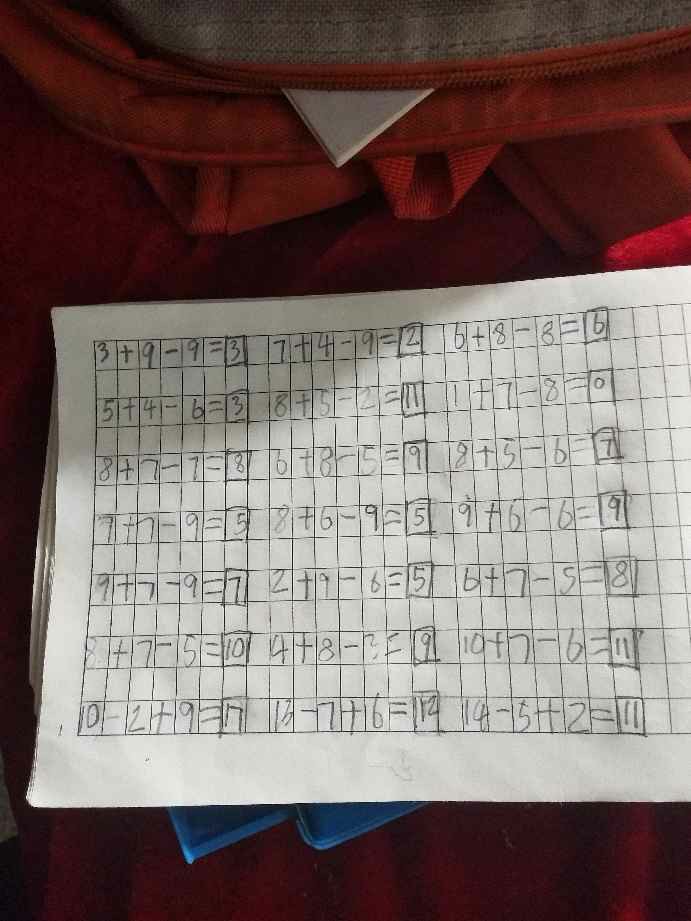 3+9-9=3 7+4-9=2 6+8-8=6
5+4-6=3 8+5-2=11 1+7-8=0
8+7-7=8 6+8-5=9 8+5-6=7
7+7-9=5 8+6-9=5 9+6-6=9
9+7-9=7 2+9-6=5 6+7-5=8
8+7-5=10 4+8-3=9 10+7-6=11
10-2+9=17 13-7+6=12 14-5+2=11